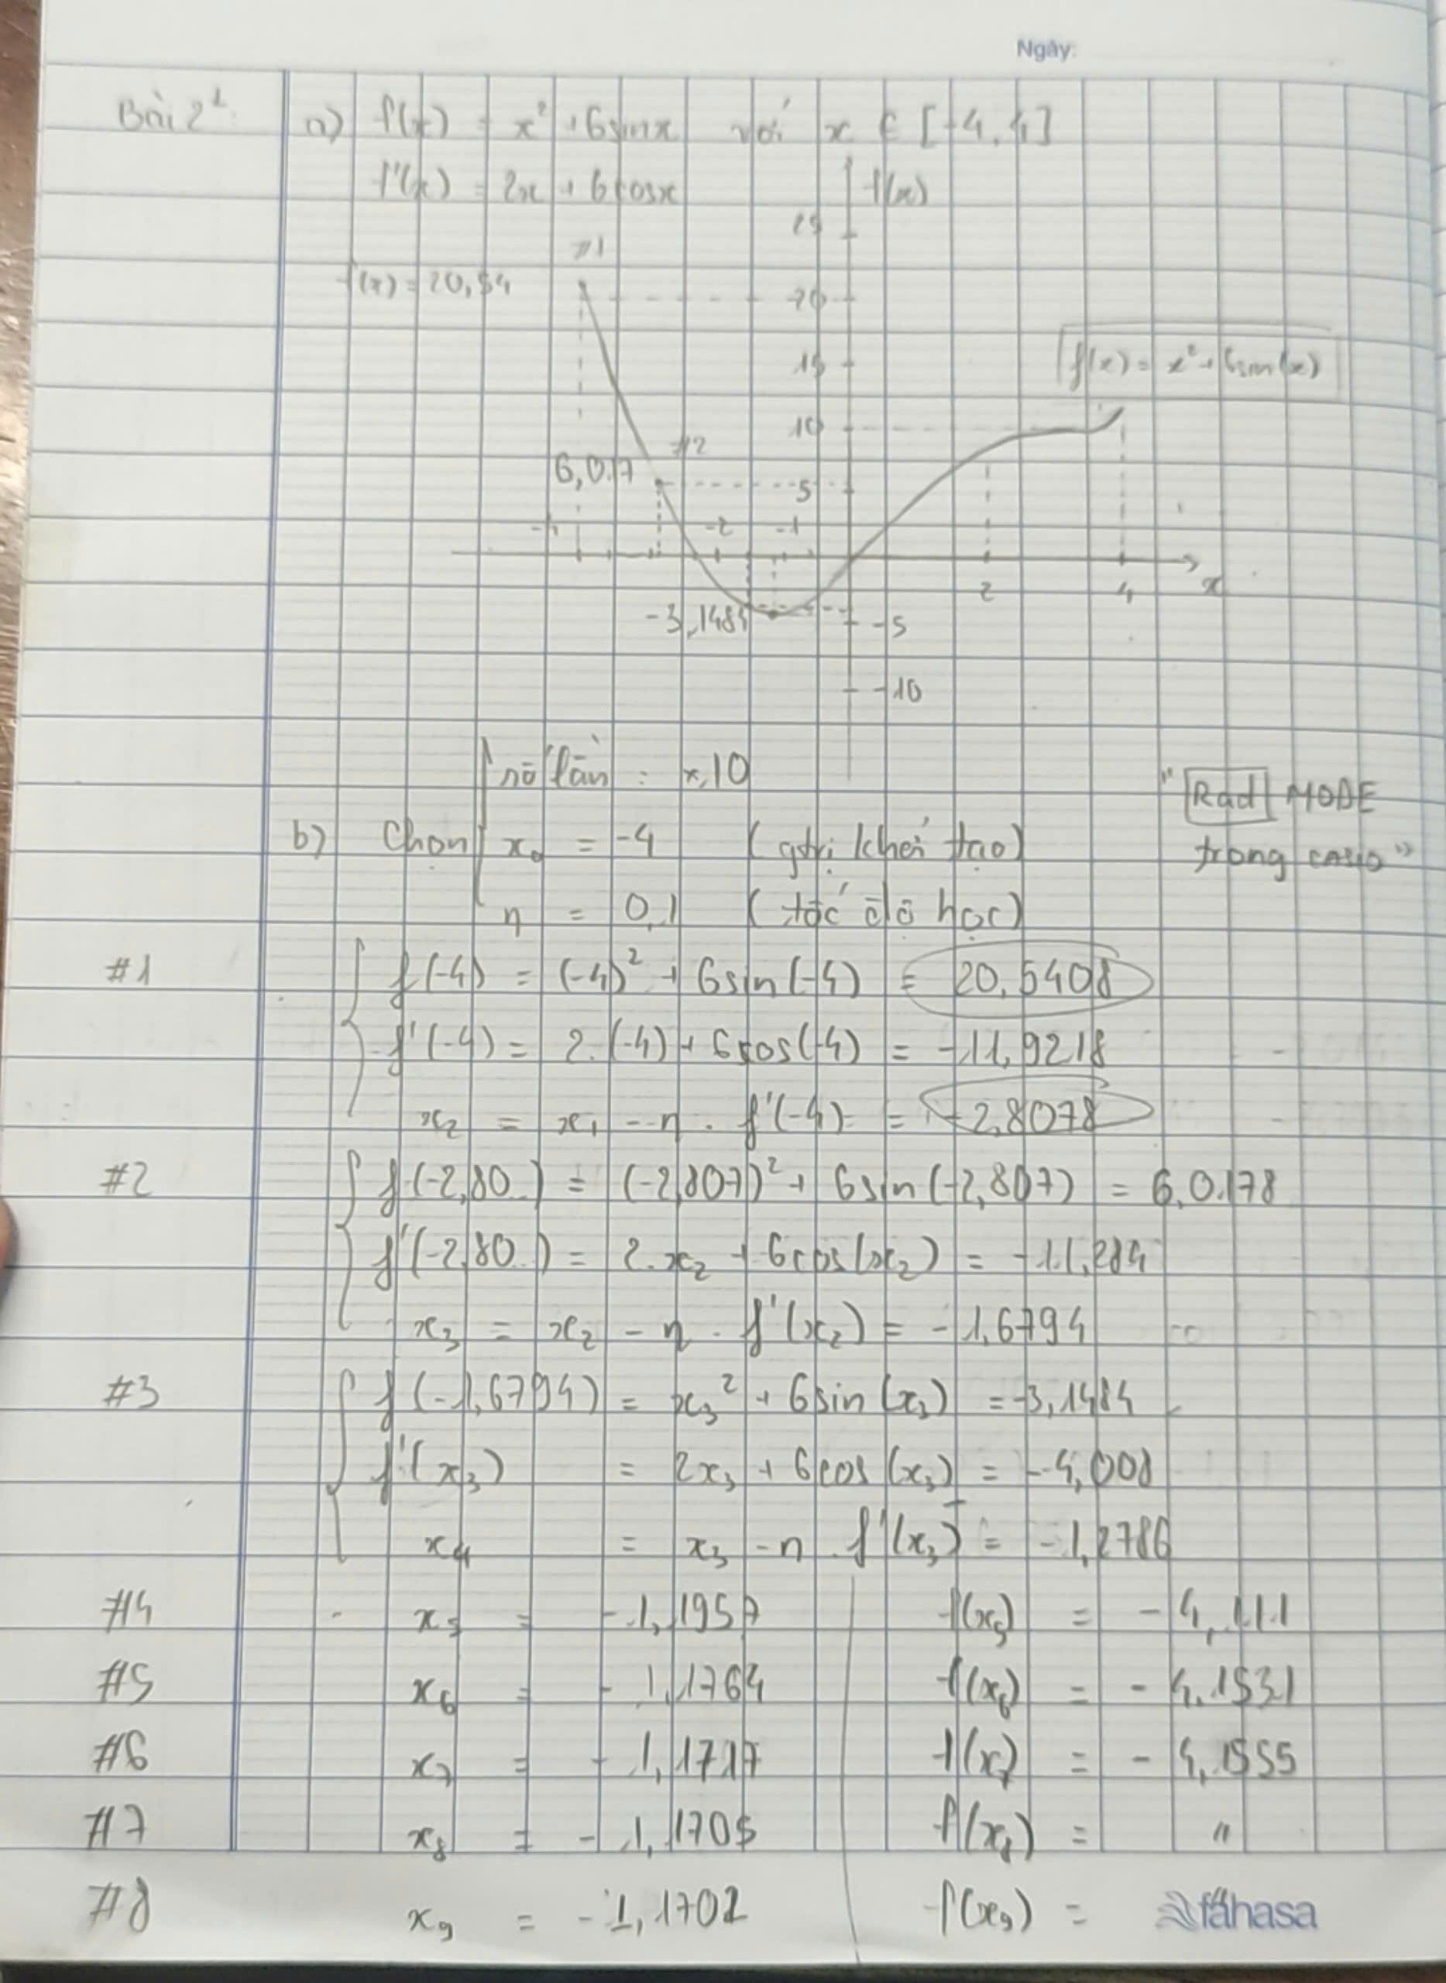 Ngày:
Bài 2: a) f(x) = x² + 6sinx với x ∈ [-4, 4]
f'(x) = 2x + 6cosx
f(x)
25
#1
f(x) = 20,54
20
15
f(x) = x² + 6sin(x)
10
#2
6,017
5
-4 -2 -1
x
2 4
-3,1484
-5
-10
số lần : x10
"Rad MODE
b) Chọn x₀ = -4 (gtrị khởi tạo)
trong casio"
η = 0,1 (tốc độ học)
#1 f(-4) = (-4)² + 6sin(-4) = 20,5408
f'(-4) = 2.(-4) + 6cos(-4) = -11,9218
x₂ = x₁ - η . f'(-4) = -2,8078
#2 f(-2,80..) = (-2,807)² + 6sin(-2,807) = 6,0.178
f'(-2,80..) = 2.x₂ + 6cos(x₂) = -11,284
x₃ = x₂ - η . f'(x₂) = -1,6794
#3 f(-1,6794) = x₃² + 6sin(x₃) = -3,1484
f'(x₃) = 2x₃ + 6cos(x₃) = -4,008
x₄ = x₃ - η . f'(x₃) = -1,2786
#4 x₅ = -1,1957 f(x₅) = -4,111
#5 x₆ = -1,1764 f(x₆) = -4,1531
#6 x₇ = -1,1717 f(x₇) = -4,1555
#7 x₈ = -1,1705 f(x₈) = "
#8 x₉ = -1,1702 f(x₉) =
fahasa